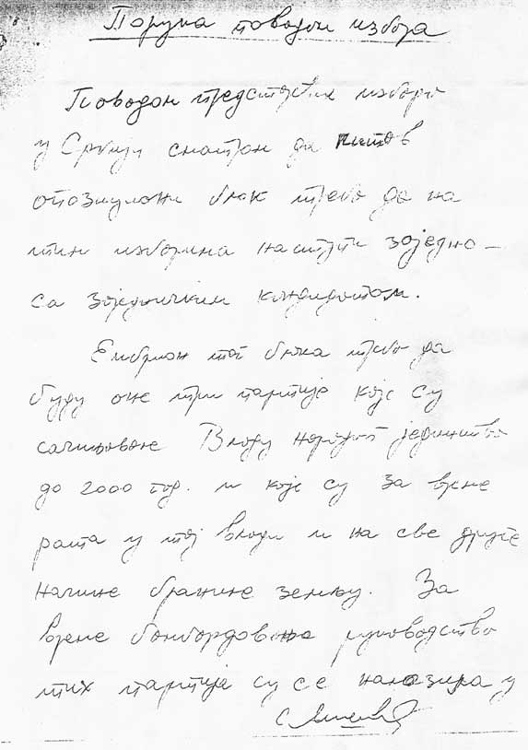 Порука поводом избора
Поводом предстојећих избора
у Србији сматрам да читав
опозициони блок треба да на
тим изборима наступи заједно –
са заједничким кандидатом.
Ембрион тог блока треба да
буду оне три партије које су
сачињавале Владу народног јединства
до 2000 год. и које су за време
рата у тој влади и на све друге
начине браниле земљу. За
време бомбардовања руководство
тих партија су се налазила у